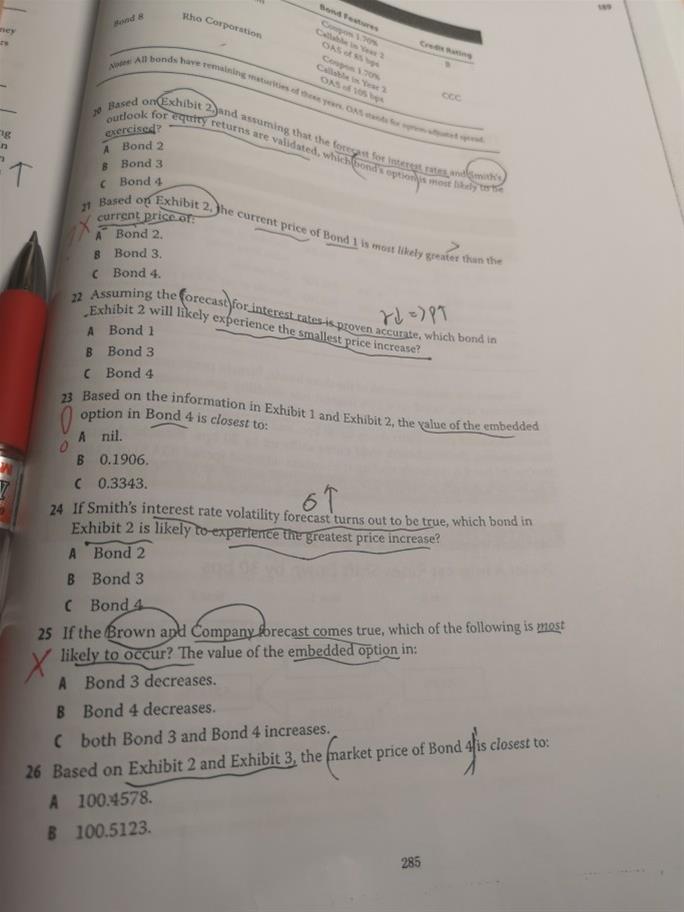 189
Bond Features
Credit Rating
Bond 8
Rho Corporation
Coupon 1.70%
Callable in Year 2
OAS of 85 bps
B
Coupon 1.70%
Callable in Year 2
OAS of 105 bps
CCC
Notes: All bonds have remaining maturities of three years. OAS stands for option-adjusted spread.
20 Based on Exhibit 2, and assuming that the forecast for interest rates and Smith's
outlook for equity returns are validated, which bond's option is most likely to be
exercised?
A Bond 2
B Bond 3
C Bond 4
21 Based on Exhibit 2, the current price of Bond 1 is most likely greater than the
current price of:
>
A Bond 2.
B Bond 3.
C Bond 4.
22 Assuming the forecast for interest rates is proven accurate, which bond in
Exhibit 2 will likely experience the smallest price increase?
r↓ => P↑
A Bond 1
B Bond 3
C Bond 4
23 Based on the information in Exhibit 1 and Exhibit 2, the value of the embedded
option in Bond 4 is closest to:
A nil.
B 0.1906.
C 0.3343.
6↑
24 If Smith's interest rate volatility forecast turns out to be true, which bond in
Exhibit 2 is likely to experience the greatest price increase?
A Bond 2
B Bond 3
C Bond 4
25 If the Brown and Company forecast comes true, which of the following is most
likely to occur? The value of the embedded option in:
A Bond 3 decreases.
B Bond 4 decreases.
C both Bond 3 and Bond 4 increases.
26 Based on Exhibit 2 and Exhibit 3, the market price of Bond 4 is closest to:
A 100.4578.
B 100.5123.
285